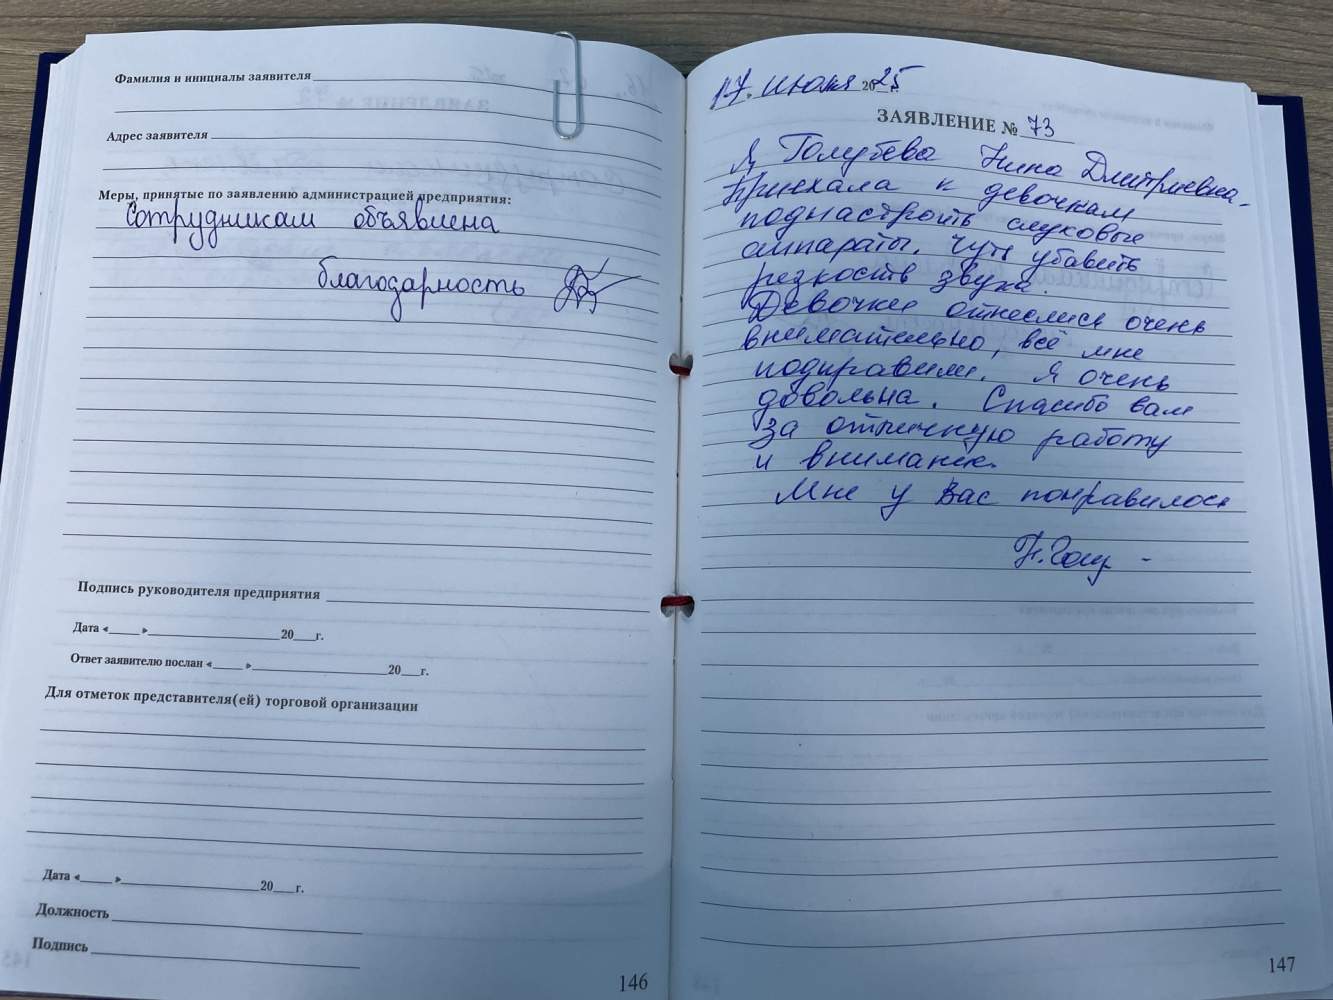 Фамилия и инициалы заявителя
Адрес заявителя
Меры, принятые по заявлению администрацией предприятия:
Сотрудникам объявлена
благодарность
Подпись руководителя предприятия
Дата «___»___20___г.
Ответ заявителю послан «___»___20___г.
Для отметок представителя(ей) торговой организации
Дата «___»___20___г.
Должность
Подпись
146
17. июля 2025
ЗАЯВЛЕНИЕ № 73
Я, Голубева Нина Дмитриевна.
Приехала к девочкам
поднастроить слуховые
аппараты. Чуть убавить
резкость звука.
Девочки отнеслись очень
внимательно, всё мне
подправили. Я очень
довольна. Спасибо вам
за отличную работу
и внимание.
Мне у Вас понравилось
Н. Голу -
147